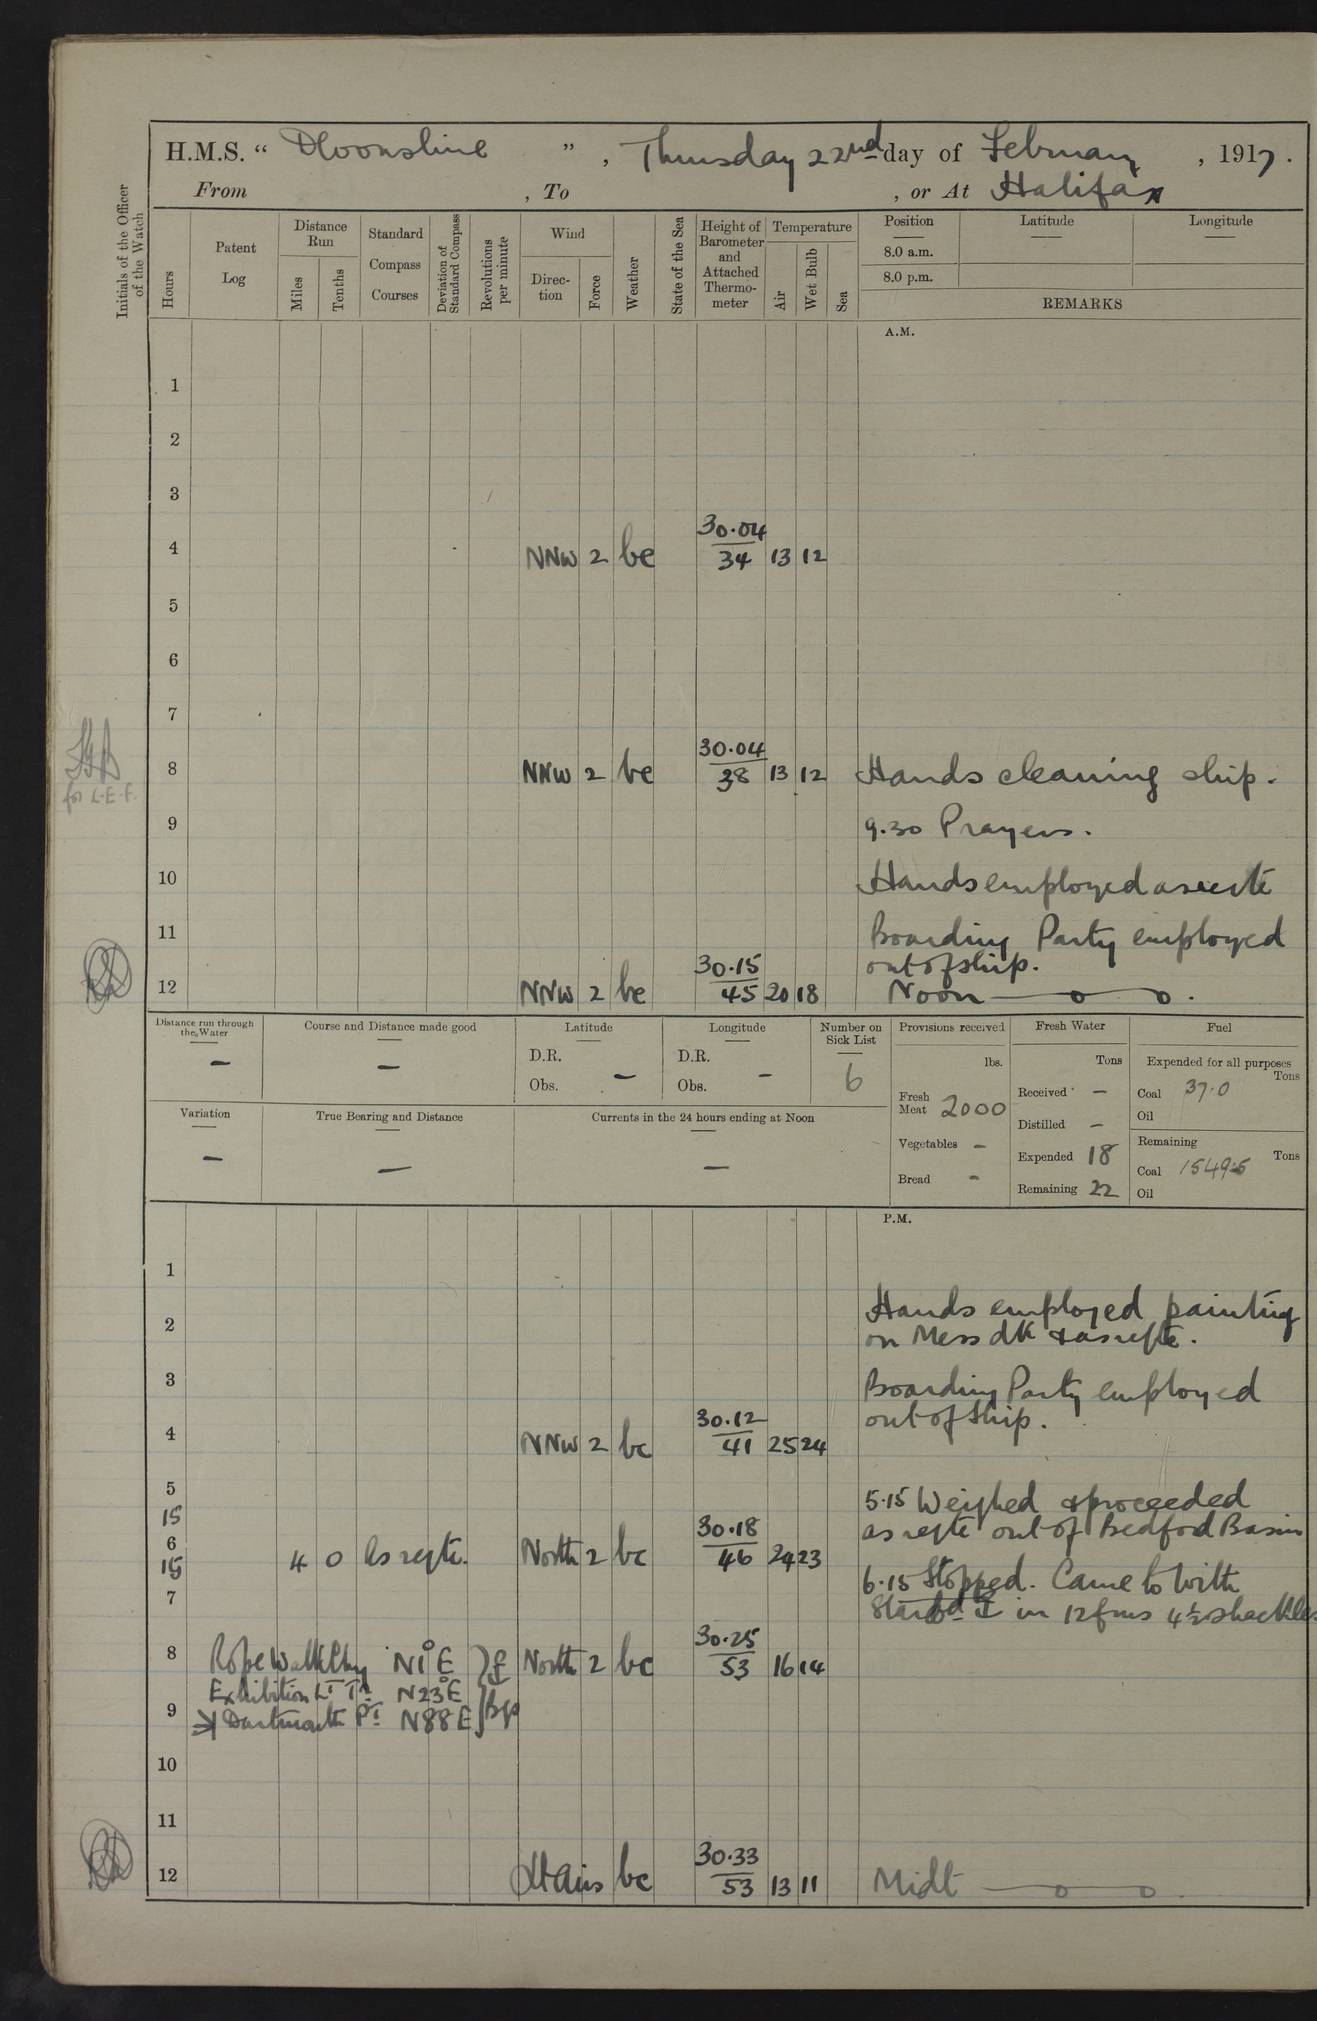 H.M.S. “ Devonshire ” , Thursday 22nd day of February , 1917 .
From , To , or At Halifax
Initials of the Officer of the Watch
Hours
Patent Log
Distance Run
Miles
Tenths
Standard Compass Courses
Deviation of Standard Compass
Revolutions per minute
Wind
Direc-tion
Force
Weather
State of the Sea
Height of Barometer and Attached Thermo-meter
Temperature
Air
Wet Bulb
Sea
Position
Latitude
Longitude
8.0 a.m.
8.0 p.m.
REMARKS
A.M.
1
2
3
4 NNW 2 bc 30.04 / 34 13 12
5
6
7
for L.E.F.
8 NNW 2 bc 30.04 / 38 13 12 Hands cleaning ship.
9 9.30 Prayers.
10 Hands employed as reqte
11 Boarding Party employed
out of ship.
12 NNW 2 bc 30.15 / 45 20 18 Noon
Distance run through the Water
–
Course and Distance made good
–
Latitude
D.R.
Obs. –
Longitude
D.R.
Obs. –
Number on Sick List
6
Provisions received
lbs.
Fresh Meat 2000
Vegetables –
Bread –
Fresh Water
Tons
Received –
Distilled –
Expended 18
Remaining 22
Fuel
Expended for all purposes
Tons
Coal 37.0
Oil
Remaining
Tons
Coal 1549.5
Oil
Variation
–
True Bearing and Distance
–
Currents in the 24 hours ending at Noon
–
P.M.
1
Hands employed painting
2 on Mess dk & as reqte.
3 Boarding Party employed
out of Ship.
4 NNW 2 bc 30.12 / 41 25 24
5 5.15 Weighed & proceeded
15 as reqte out of Bedford Basin
6
15 4 0 As reqte. North 2 bc 30.18 / 46 24 23
6.15 Stopped. Came to with
7 Starbd in 12 fms 4½ shackles
8 Rope Walk Chy N1°E North 2 bc 30.25 / 53 16 14
Exhibition Lt Tr N23°E
9 Dartmouth Pt N88E Bgs
10
11
12 Lt Airs bc 30.33 / 53 13 11 Midt